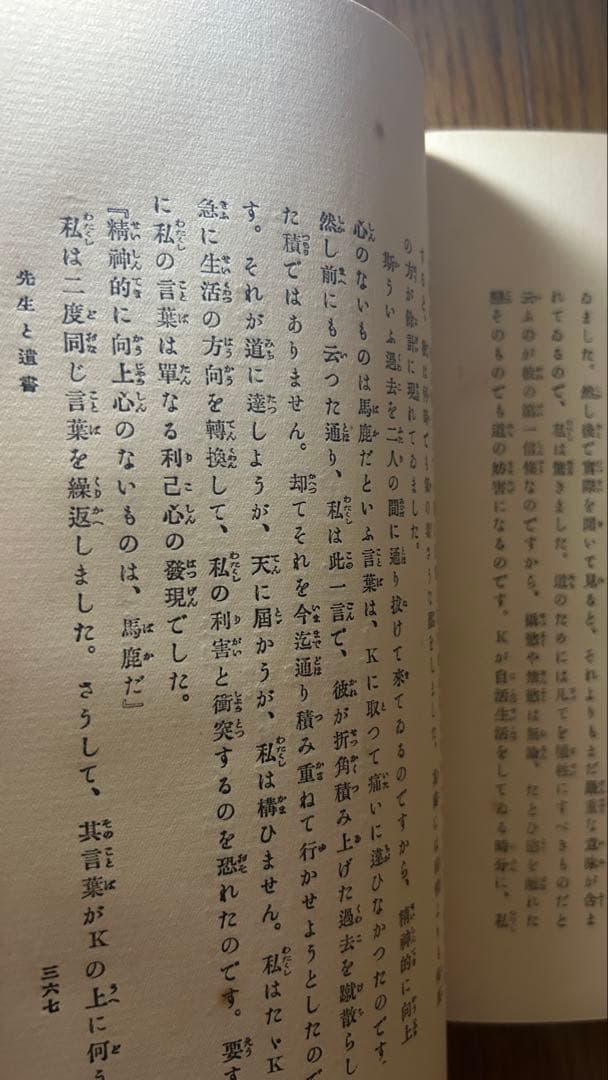 ゐました。然し後で實際を聞いて見ると、それよりもまだ嚴重な意味が含ま
れてゐるので、私は驚きました。道のためには凡てを犧牲にすべきものだと
云ふのが彼の第一信條なのですから、攝慾や禁慾は無論、たとひ慾を離れた
戀そのものでも道の妨害になるのです。Kが自活生活をしてゐる時分に、私
すると、彼は何時でも氣の毒さうな顔をしました。
の方が餘計に現れてゐました。
斯ういふ過去を二人の間に通り拔けて來てゐるのですから、精神的に向上
心のないものは馬鹿だといふ言葉は、Kに取つて痛いに違ひなかつたのです。
然し前にも云つた通り、私は此一言で、彼が折角積み上げた過去を蹴散らし
た積ではありません。却てそれを今迄通り積み重ねて行かせようとしたので
す。それが道に達しようが、天に屆かうが、私は構ひません。私はたゞK
急に生活の方向を轉換して、私の利害と衝突するのを恐れたのです。要す
に私の言葉は單なる利己心の發現でした。
『精神的に向上心のないものは、馬鹿だ』
私は二度同じ言葉を繰返しました。さうして、其言葉がKの上に何う
先生と遺書
三六七